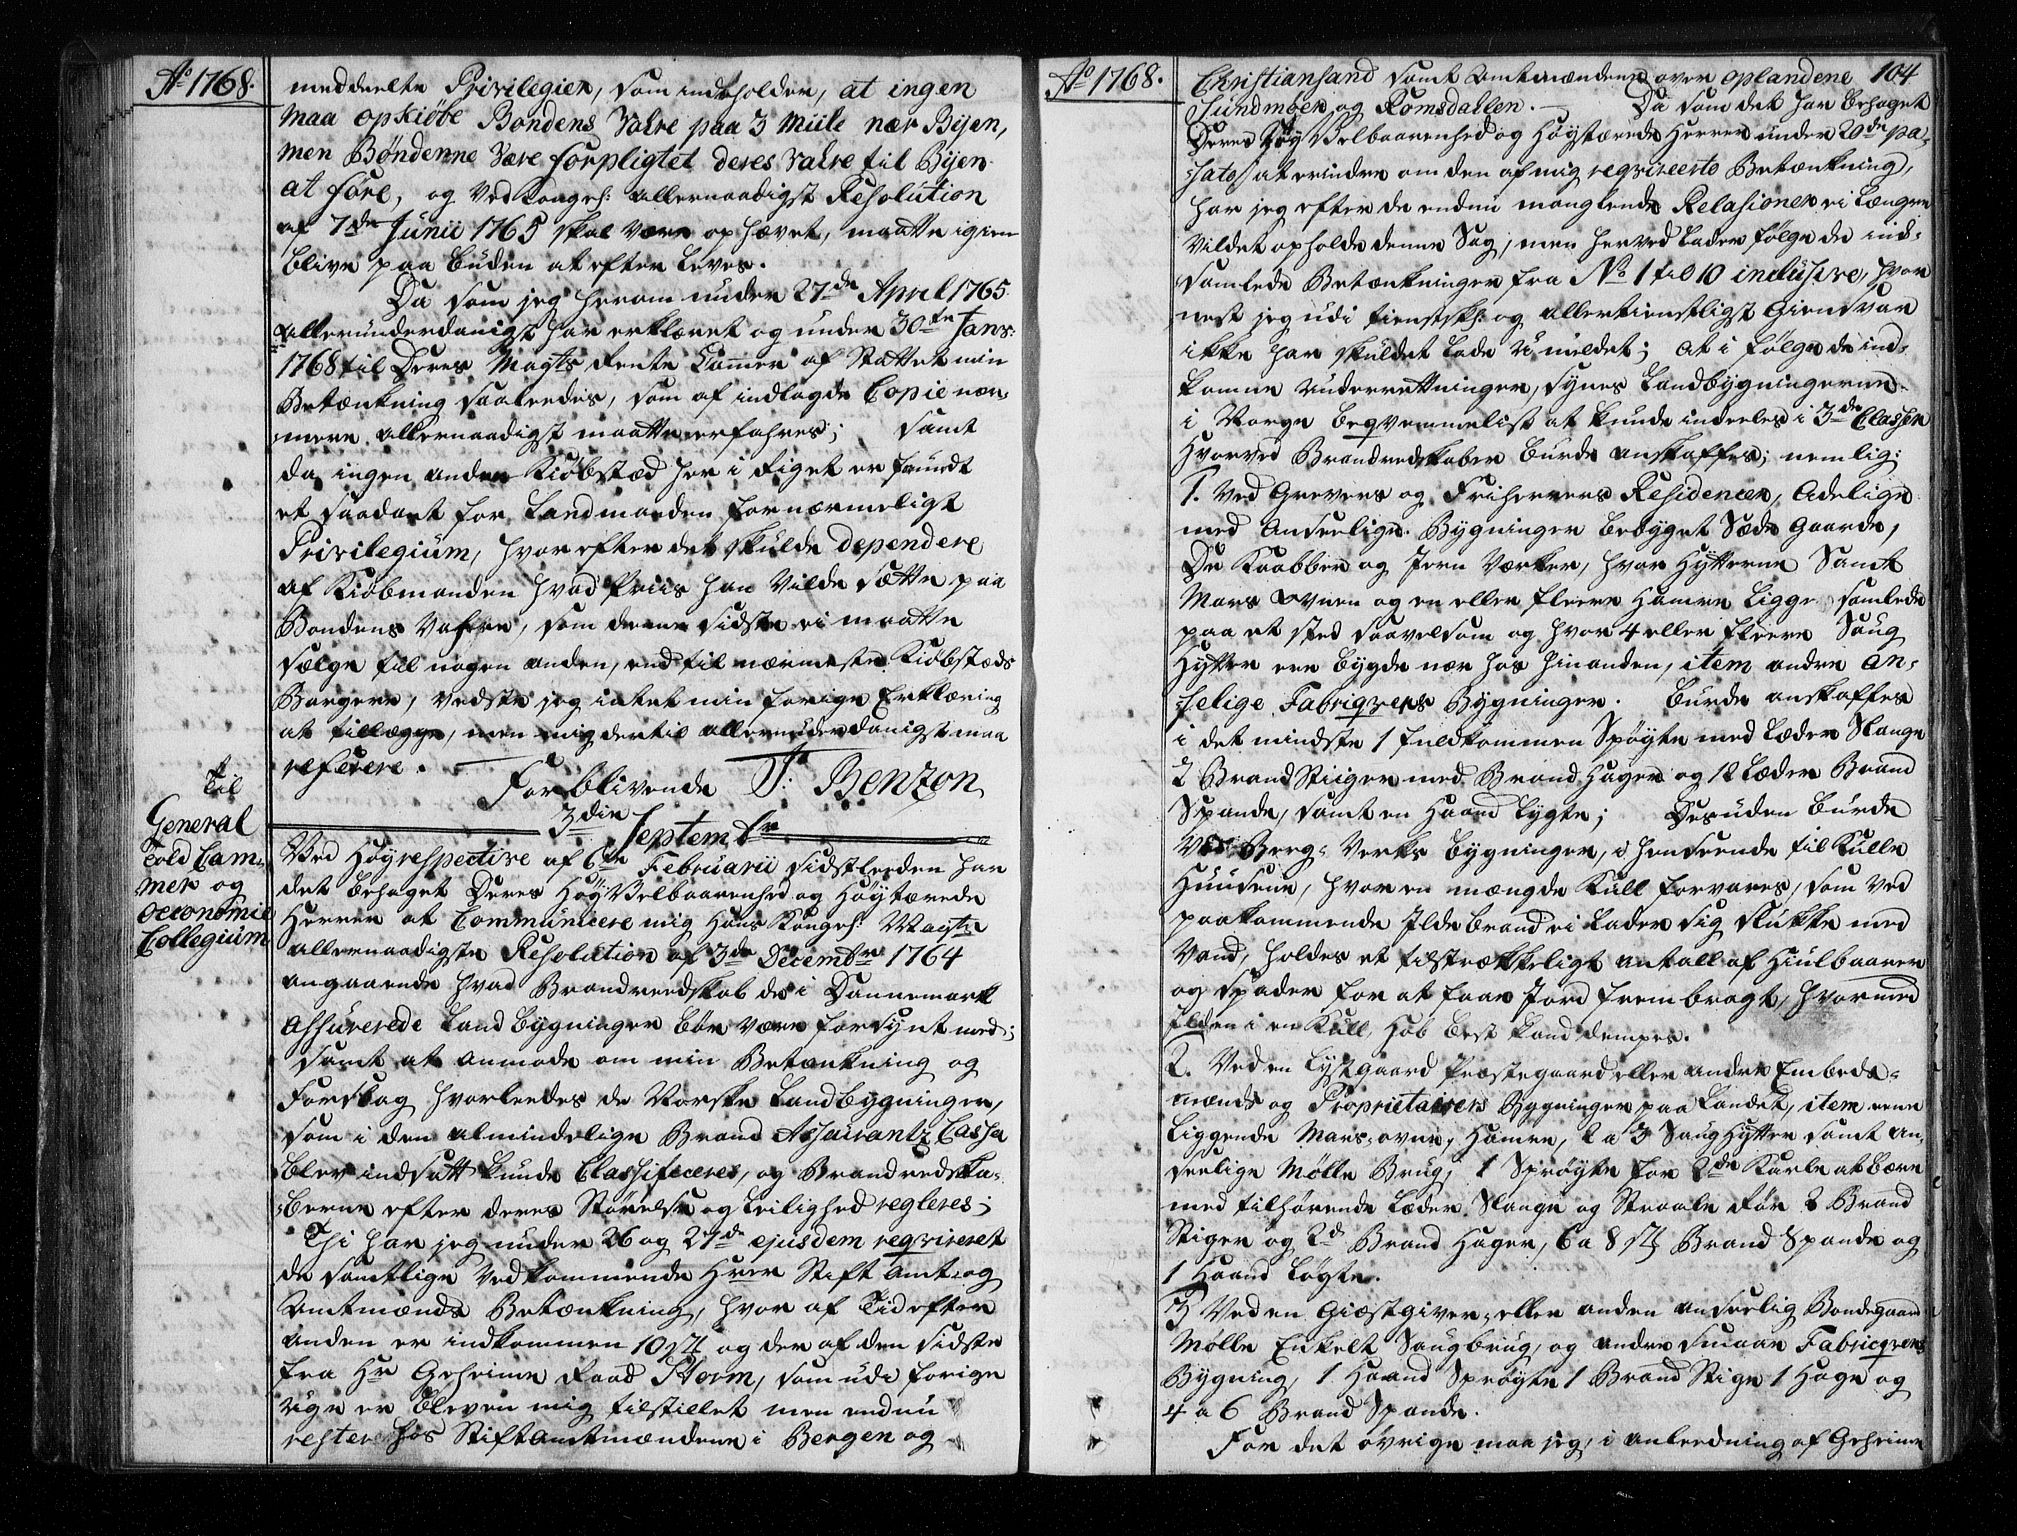 Ao 1768.
meddeelte Privilegier, som indeholder, at ingen
maa opkiøbe Bondens Vahre paa 3 Miile nær Byen,
men Bøndenne være forpligtet deres Vahre til Byen
at føre, og ved Kongel: allernaadigst Resolution
af 7de Junii 1765 skal være ophævet, maatte igien
blive paabuden at efterleves.
Da som jeg herom under 27de April 1765
allerunderdanigst har erklæret og under 30te Janr:
1768 til Deres Mayts Rente Cammer afstattet min
Betænkning saaledes, som af indlagde Copie nær-
mere allernaadigst maatte erfahres; samt
da ingen anden Kiøbstæd her i Riget er fundt
et saadant for Landmanden fornærmeligt
Privilegium, hvorefter det skulde dependere
af Kiøbmanden hvad Priis han vilde sætte paa
Bondens Vahre, som denne sidste ei maatte
sælge til nogen anden, end til nærmeste Kiøbstæds
Borgere, vedste jeg intet min forige Erklæring
at tillægge, men mig dertil allerunderdanigst maa
referere.
Forblivende J: Benzon
3die Septembr
Til
General
Told Cam-
mer og
Oeconomie
Collegium
Ved Høyrespective af 6te Februarii sidstleeden har
det behaget Deres Høy-Velbaarenhed og Høystærede
Herrer at Communicere mig Hans Kongel: Mayts
allernaadigste Resolution af 3de Decembr 1764
angaaende hvad Brandreedskab de i Dannemark
assurerede Landbygninger bør være forsynt med;
samt at anmode om min Betænkning og
Forslag hvorleedes de Norske Landbygninger,
som i den almindelige Brand Assurantz Cassa
blev indsatt kunde Classificeres, og Brandredska-
berne efter deres Størelse og Leilighed regleres;
Thi har jeg under 26 og 27de ejusdem reqvireret
de samtlige vedkommende Hrer Stift Amt- og
Amtmænds Betænkning, hvor af Tid efter
anden er indkommen 10 st og der af den sidste
fra Hr Geheime Raad Storm, som udi forige
Uge er bleven mig tilstillet men endnu
resterer hos Stiftamtmændene i Bergen og
Ao 1768.
104
Christiansand samt Amtmændene over Oplandene
Sundmøer og Romsdallen. Da som det har behaget
Deres Høy Velbaarenhed og Høystærede Herrer under 20de pa-
sato at erindre om den af mig reqvireerte Betænkning,
har jeg efter de endnu manglende Relasioner ei længere
vildet opholde denne Sag, men herved lader følge de ind-
samlede Betænkninger fra No 1 til 10 inclusive, hvor
nest jeg udi tienstskl: og allertienstligst Giensvar
ikke har skuldet lade Umeldet; At i følge de ind-
komne Underrettninger, synes Landbygningerne
i Norge beqvemmelist at kunde inddeeles i 3de Classer
hvorved Brandredskaber burde anskaffes; nemlig:
1. Ved Grevers og Friherrers Residencer, Adelige
med Anseelige Bygninger bebygget Sæde Gaarde,
De Kaabber og Jern Værker, hvor Hytterne Samt
Mars Ovnen og en eller fleere Hamre ligge samlede
paa et sted saavelsom og hvor 4 eller fleere Saug
Hytter ere bygde nær hos hinanden, item andre an-
selige Fabriqvers Bygninger. burde anskaffes
i det mindste 1 fuldkommen Spøyte med Læder Slange
2 Brand Stiiger med Brand Hager og 12 Læder Brand
Spande, samt en Haand Løgte; Desuden burde
Ved Berg-Verks bygninger, i henseende til Kulle
Huusene, hvor en mængde Kull forvares, som ved
paakommende Ildebrand ei lader sig slukke med
Vand, holdes et tilstrækkeligt antall af Hiulbaarer
og Spader for at faae Jord frembragt, hvormed
Ilden i en Kull Hob best kand dempes.
2. Ved en Lystgaard Præstegaard eller andre Embeds-
mænds og Proprietairers Bygninger paa Landet, item eene
liggende Mars-ovne, Hamre, 2 a 3 Saug Hytter samt an-
seelige Mølle Brug, 1 Sprøyte for 2de Karle at bære
med tilhørende Læder Slange og Straale Rør 2 Brand
Stiger og 2de Brand Hager, 6 a 8 st Brand Spande og
1 Haand Løgte.
3. Ved en Giæstgiver- eller anden anseelig Bondegaard
Mølle Enkelt Saugbrug, og andre smaae Fabricqvers
Bygning, 1 Haand Sprøyte 1 Brand Stige 1 Hage og
4 a 6 Brand Spande.
For det øvrige maa jeg, i anleedning af Geheime